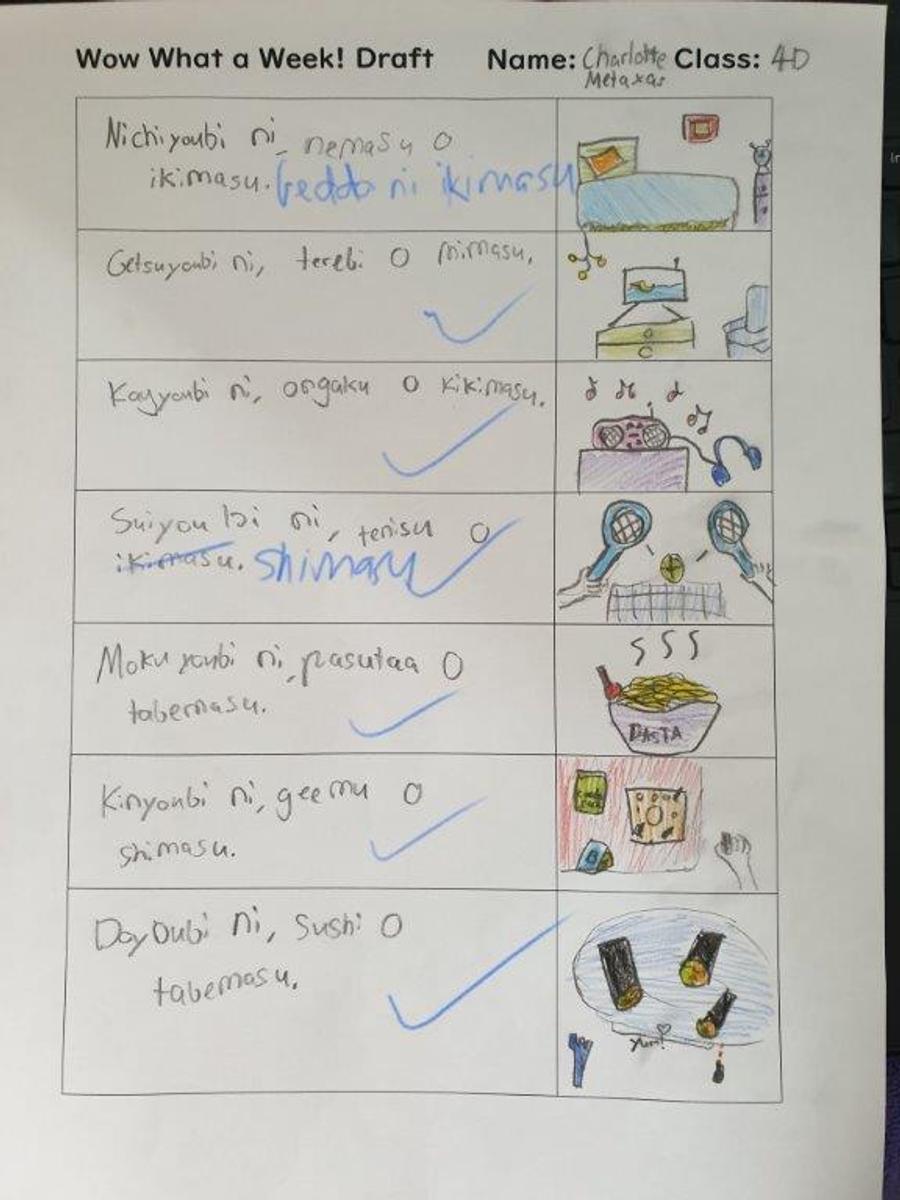 Wow What a Week! Draft Name: Charlotte Class: 4D
Metaxas
Nichiyoubi ni, nemasu o
ikimasu. beddo ni ikimasu
Getsuyoubi ni, terebi o mimasu.
Kayyoubi ni, ongaku o kikimasu.
Suiyoubi ni, tenisu o
ikimasu. shimasu
Mokuyoubi ni, pasutaa o
tabemasu.
PASTA
Kinyoubi ni, geemu o
shimasu.
Doyoubi ni, sushi o
tabemasu.
Yum!